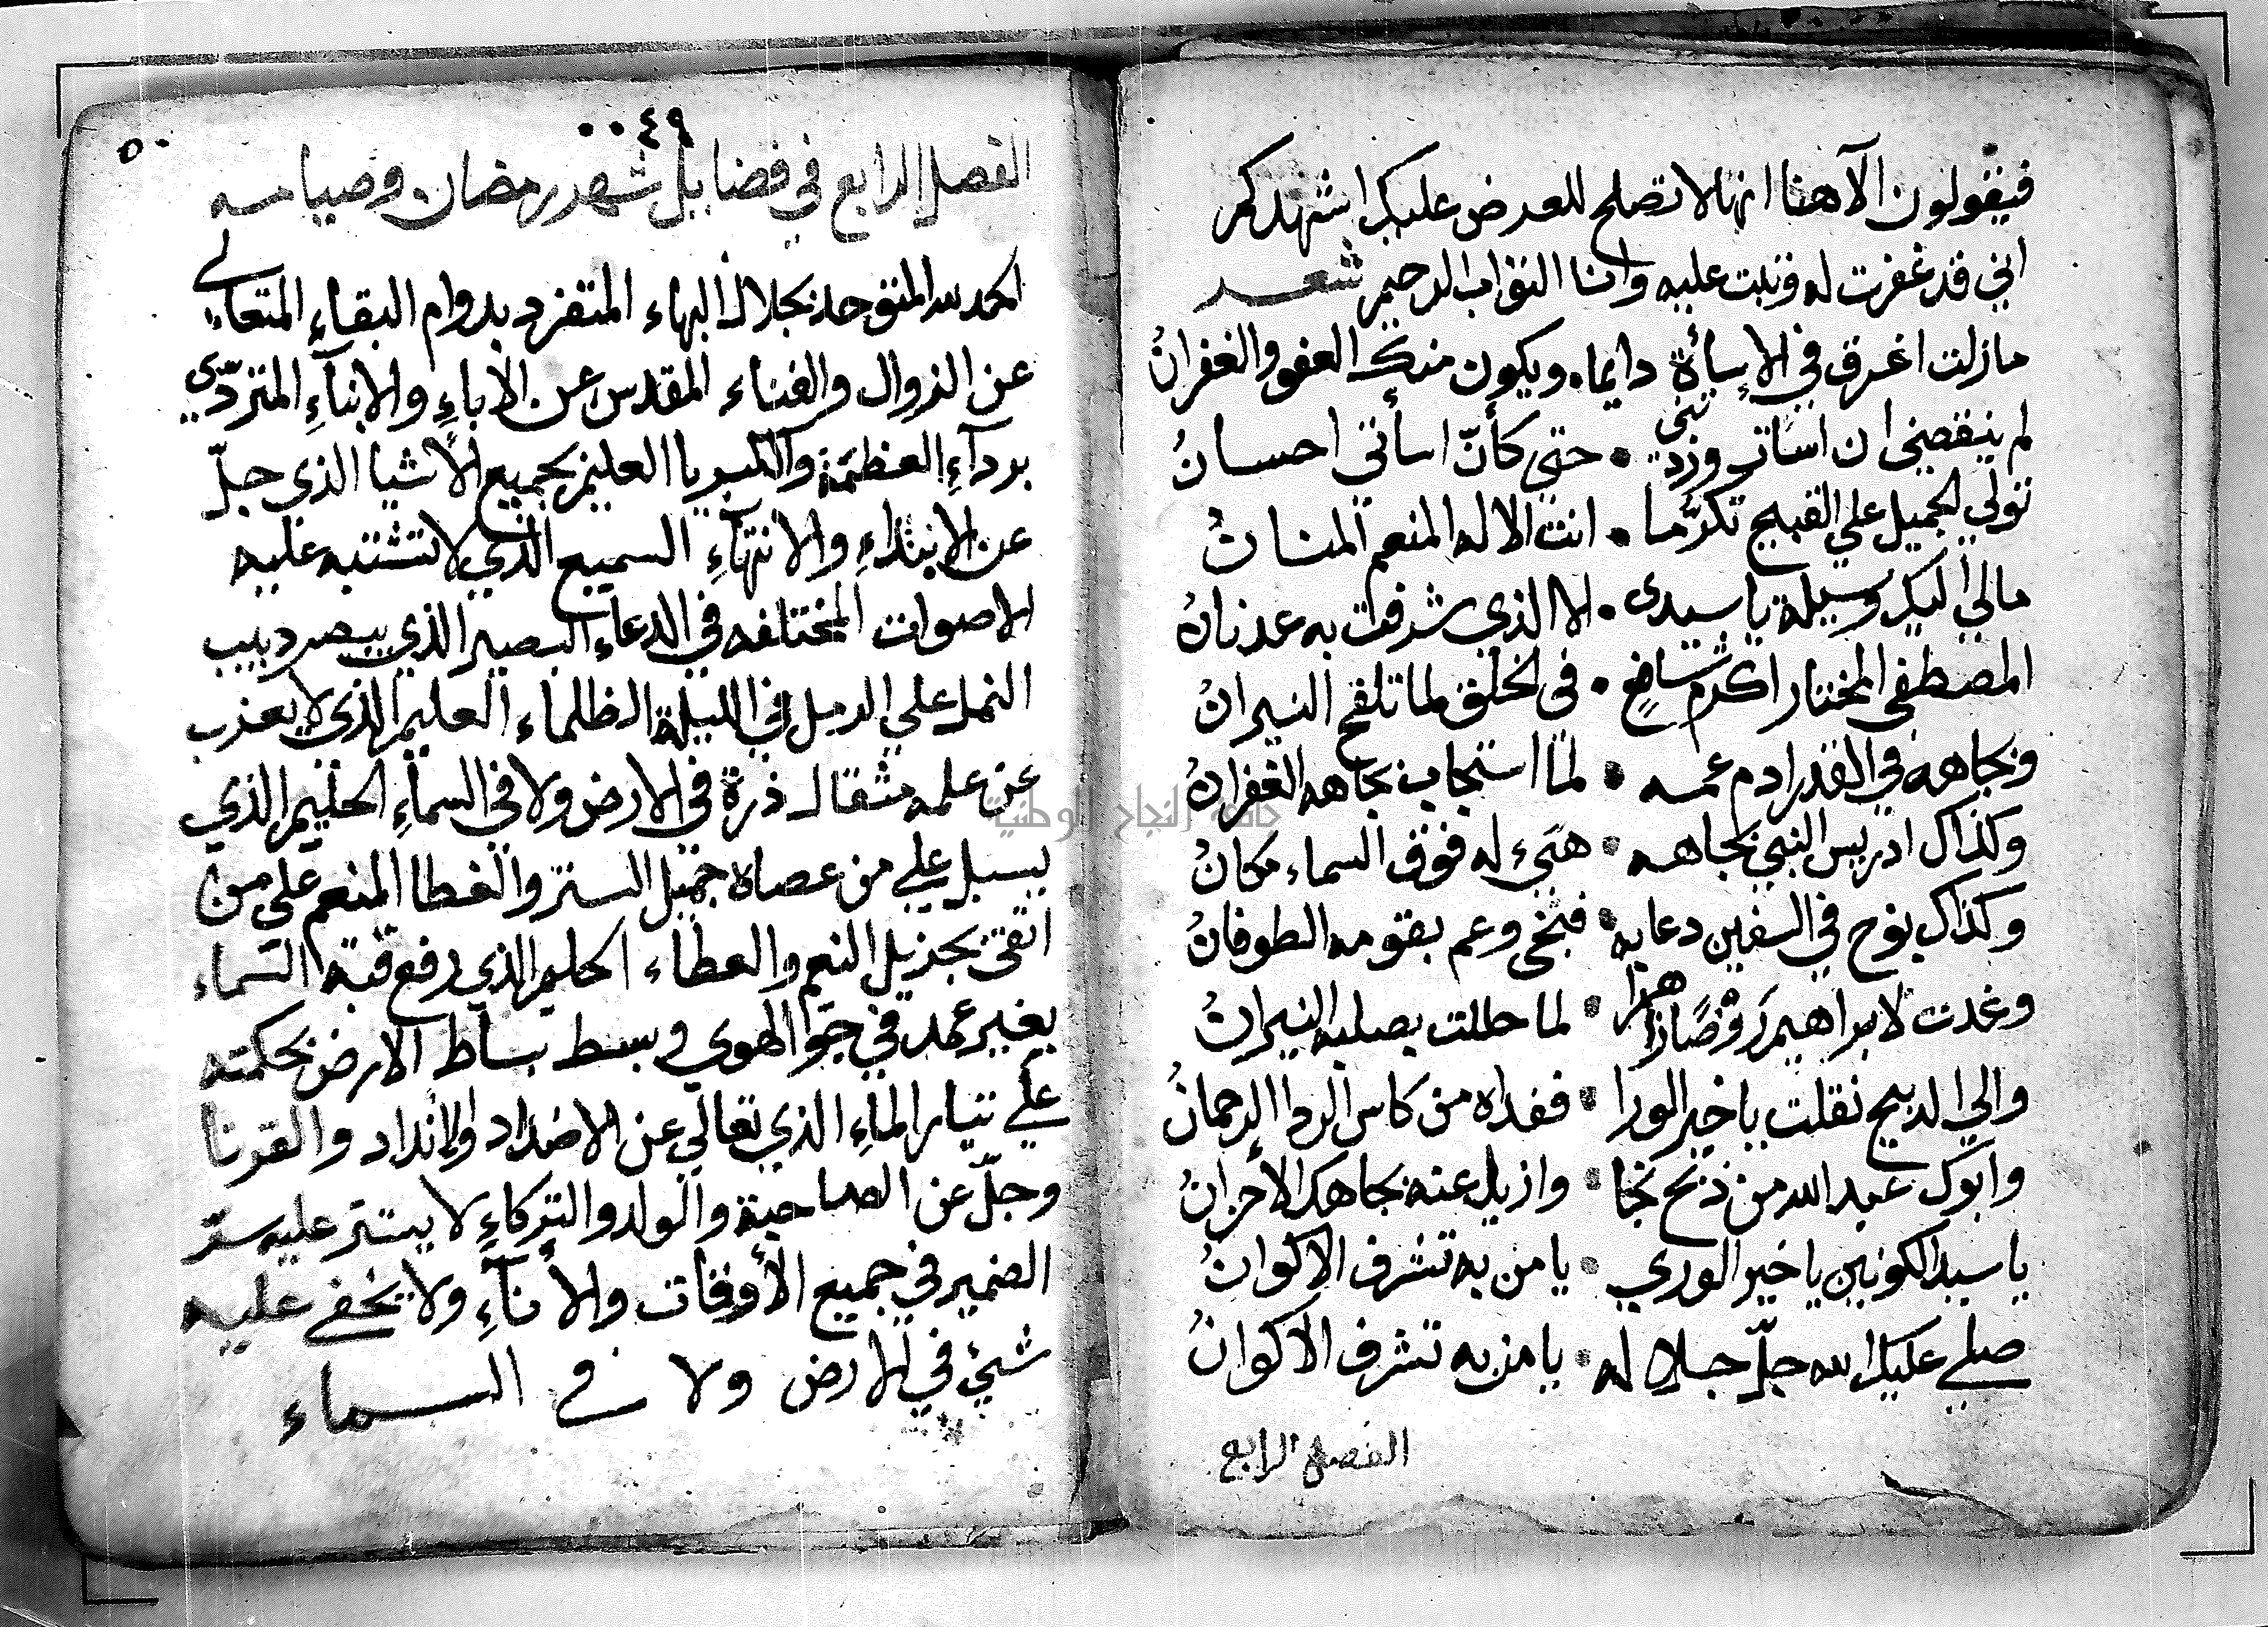 فيقولون الآهنا انها لا تصلح للعرض عليك اشهدكم
اني قد غفرت له وتبت عليه وانا التواب الرحيم شعر
مازلت اغرق في الإسأة دايما ويكون منك العفو والغفرانُ
لم ينقصني ان اسأت وزدتني • حتي كأنّ اسأتي احسانُ
تولي الجميل علي القبيح تكرُّما • انت الاله المنعم المنانُ
مالي اليك وسيلة يا سيدى • الا الذي شرفت به عدنانُ
المصطفي المختار اكرم شافعٍ • في الخلق لما تلفح النيرانُ
وبجاهه في القدر ادم عمه • لما استجاب بجاهه الغفرانُ
وكذاك ادريس النبي بجاهه • هيّء له فوق السماء مكانُ
وكذاك نوح في السفين دعا به • فنجى وعم بقومه الطوفانُ
وغدت لابراهيم روضًا زاهرا • لما حللت بصلبه النيرانُ
والي الذبيح نقلت يا خير الورا • ففداه من كاس الردا الرحمانُ
وابوك عبد الله من ذبح نجا • وازيل عنه بجاهك الأحزانُ
يا سيد الكونين يا خير الوري • يا من به تشرف الاكوانُ
صلي عليك الله جلّ جلاله • يا من به تشرف الاكوانُ
الفصل الرابع
٠٠٤٩
٥٠
الفصل الرابع في فضايل شهر رمضان وصيامه
الحمد لله المتوحد بجلال البهاء المتفرد بدوام البقاءِ المتعالي
عن الزوال والفناء المقدس عن الأباءِ والابنآءِ المتردّي
بردآءِ العظمة والكبريا العليم بجميع الأشيا الذي جلّ
عن الابتداءِ والانتهآءِ السميع الذي لا تشتبه عليه
الاصوات المختلفه في الدعاء البصير الذي يبصر دبيب
النمل علي الرمل في الليلة الظلماء العليم الذي لا يعزب
عن علمه مثقال ذرة في الارض ولا في السماءِ الحليم الذي
يسبل علي من عصاه جميل الستر والغطا المنعم علي من
اتقى بجزيل النعم والعطاء الحليم الذي رفع قبة السماء
بغير عمد في جو الهوي وبسط بساط الارض بحكمته
علي تيار الماءِ الذي تعالي عن الاضداد والانداد والقرنا
وجلّ عن الصاحبة والولد والشركاءِ لا يستتر عليه سرّ
الضمير في جميع الأوقات والأنآءِ ولا يخفي عليه
شيئ في الارض ولا في السماء
جامعة النجاح الوطنية